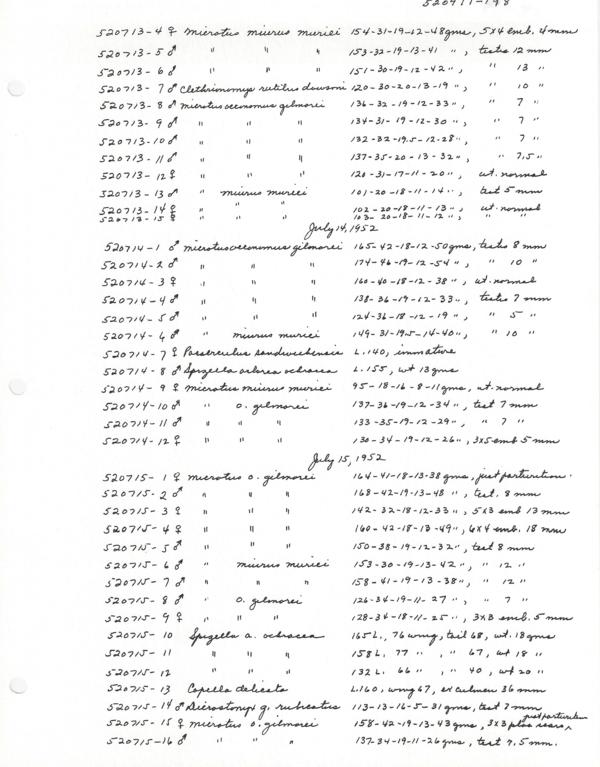 520713-4 ♀ Microtus miurus muriei 154-31-19-12-48gms, 5x4 emb. 4mm
520713-5 ♂ " " " 153-32-19-13-41 ", testes 12 mm
520713-6 ♂ " " " 151-30-19-12-42 ", " 13 "
520713-7 ♂ Clethrionomys rutilus dawsoni 120-30-20-13-19 ", " 10 "
520713-8 ♂ Microtus oeconomus gilmorei 136-32-19-12-33 ", " 7 "
520713-9 ♂ " " " 134-31-19-12-30 ", " 7 "
520713-10 ♂ " " " 132-32-19.5-12-28 ", " 7 "
520713-11 ♂ " " " 137-35-20-13-32 ", " 7.5 "
520713-12 ♀ " " " 120-31-17-11-20 ", ut. normal
520713-13 ♂ " miurus muriei 101-20-18-11-14 ", test 5 mm
520713-14 ♀ " " " 102-20-18-11-13 ", ut. normal
520713-15 ♀ " " " 103-20-18-11-12 ", " "
July 14, 1952
520714-1 ♂ Microtus oeconomus gilmorei 165-42-18-12-50gms, testes 8 mm
520714-2 ♂ " " " 174-46-19-12-54 ", " 10 "
520714-3 ♀ " " " 160-40-18-12-38 ", ut. normal
520714-4 ♂ " " " 138-36-19-12-33 ", testes 7 mm
520714-5 ♂ " " " 124-36-18-12-19 ", " 5 "
520714-6 ♂ " miurus muriei 149-31-19.5-14-40 ", " 10 "
520714-7 ♀ Passerculus sandwichensis L.140, immature
520714-8 ♂ Spizella arborea ochracea L.155, wt 13gms
520714-9 ♀ Microtus miurus muriei 95-18-16-8-11gms, ut. normal
520714-10 ♂ " o. gilmorei 137-36-19-12-34 ", test 7 mm
520714-11 ♂ " " " 133-35-19-12-29 ", " 7 "
520714-12 ♀ " " " 130-34-19-12-26 ", 3x5 emb 5 mm
July 15, 1952
520715-1 ♀ Microtus o. gilmorei 164-41-18-13-38 gms, just parturition.
520715-2 ♂ " " " 168-42-19-13-48 ", test. 8 mm
520715-3 ♀ " " " 142-32-18-12-33 ", 5x3 emb 13 mm
520715-4 ♀ " " " 160-42-18-13-49 ", 6x4 emb. 18 mm
520715-5 ♂ " " " 150-38-19-12-32 ", test 8 mm
520715-6 ♂ " miurus muriei 153-30-19-13-42 ", " 12 "
520715-7 ♂ " " " 158-41-19-13-38 ", " 12 "
520715-8 ♂ " o. gilmorei 126-34-19-11-27 ", " 7 "
520715-9 ♀ " " " 128-34-18-11-25 ", 3x3 emb. 5 mm
520715-10 Spizella a. ochracea 165L., 76 wing, tail 68, wt. 18gms
520715-11 " " " 158L. 77 " , " 67, wt 18 "
520715-12 " " " 132L. 66 " , " 40, wt 20 "
520715-13 Capella delicata L.160, wing 67, ex culmen 36 mm
520715-14 ♂ Dicrostonyx g. rubricatus 113-13-16-5-31gms, test 7 mm
520715-15 ♀ Microtus o. gilmorei 158-42-19-13-43gms, 3x3 just parturition
520715-16 ♂ " " " 137-34-19-11-26gms, test 7.5 mm.